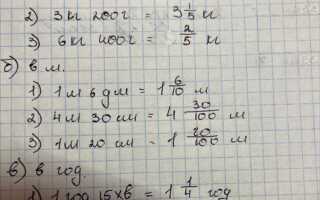 2) 3кг 200г = 3 1/5 кг
3) 6кг 400г = 2/5 кг
б) в м.
1) 1м 6дм = 1 6/10 м
2) 4м 30см = 4 30/100 м
3) 1м 20см = 1 20/100 м
в) в год.
= 1 1/4 год